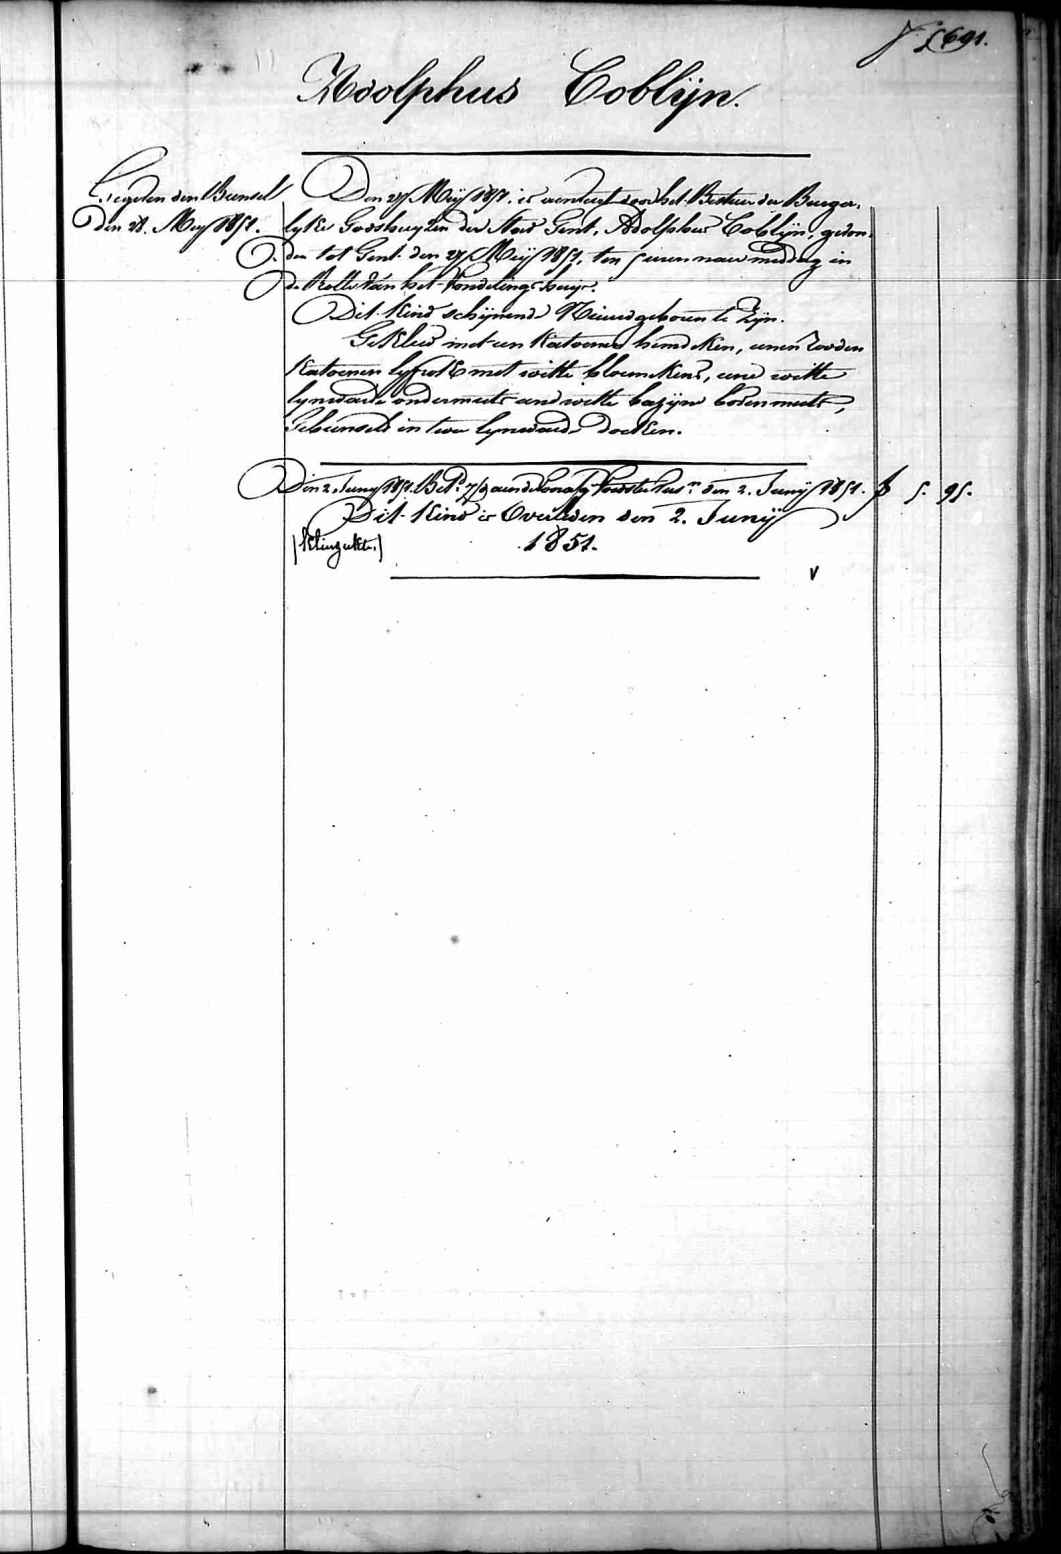 f. 691.
Adolphus Coblijn.
Gegeten den Bunsel
den 28. Mey 1851.
Den 27 Meij 1851. is aenveert door het Bestuer der Burger-
lyke Godshuyzen der Stad Gent, Adolphus Coblijn, gevon-
den tot Gent den 27 Meij 1851, ten 5 uren naer middag in
de Rolle van het Vondelings huys.
Dit Kind schijnend Nieuwgeboren te Zijn.
Gekleed met een Katoenen hemdeken, eenen Rooden
Katoenen lyfrok met witte bloemkens, eene witte
lynwaede ondermuts eene witte bazijn bovenmuts,
Gebunseld in twee lynwaede doeken.
Den 2. Juny 1851. Bet. aen de den 2. Junij 1851. f 5. 95.
Dit Kind is Overleden den 2. Junij
1851.